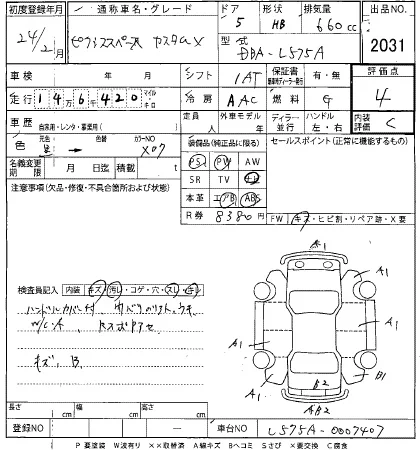 初度登録年月 通称車名・グレード ドア 形状 排気量 出品NO.
24年2月 カスタムX 5 HB 660cc
型式 DBA-L575A 2031
車検 年 月 シフト 1AT 保証書 有・無 評価点
走行 146千420 マイル キロ 冷房 AAC 燃料 G 4
車歴 自家用・レンタ・事業用( ) 定員 人 外車モデル 年 ディーラー 並行 ハンドル 左・右 内装評価 C
色 元色 黒 → 色替 カラーNO X07
装備品(純正品に限る) セールスポイント(正常に機能するもの)
PS PW AW
名義変更期限 月 日迄 積載 t
SR TV ナビ
注意事項(欠品・修復・不具合箇所および状態)
本革 エアB ABS
R券 8380
FW キズ・ヒビ割・リペア跡・X要
A1
A1 A1
検査員記入 内装 キズ・汚れ・コゲ・穴・スレ・
ハンドルカバー付
W/C・A
A1 A1
キズ、B
A1 B1
B2
AB2
長さ cm 幅 cm 高さ cm
登録NO ― 車台NO L575A-0007407
P要塗装 W波有り XX取替済 A線キズ Bヘコミ Sさび X要交換 C腐食